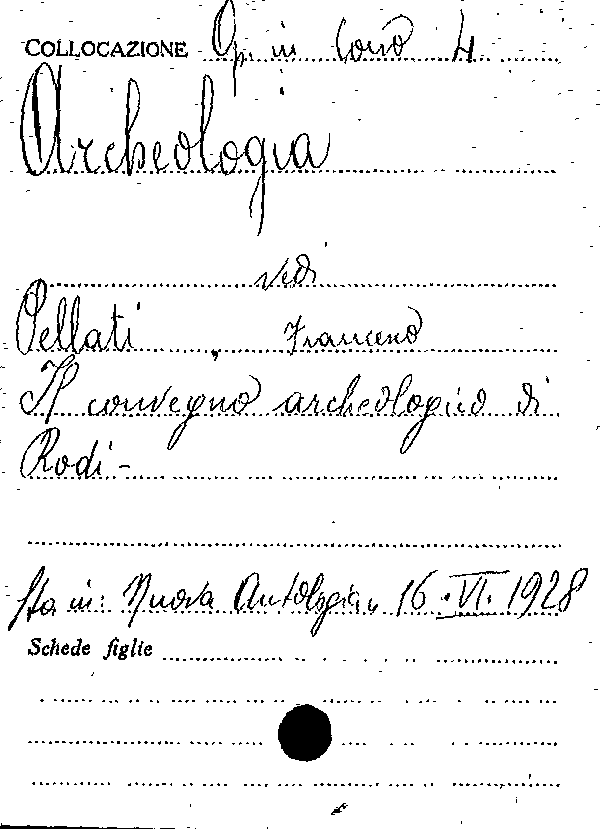 COLLOCAZIONE Op. in Cons 4
Archeologia
vedi
Pellati, Francesco
Il convegno archeologico di
Rodi -
Sta in: Nuova Antologia, 16.VI.1928
Schede figlie